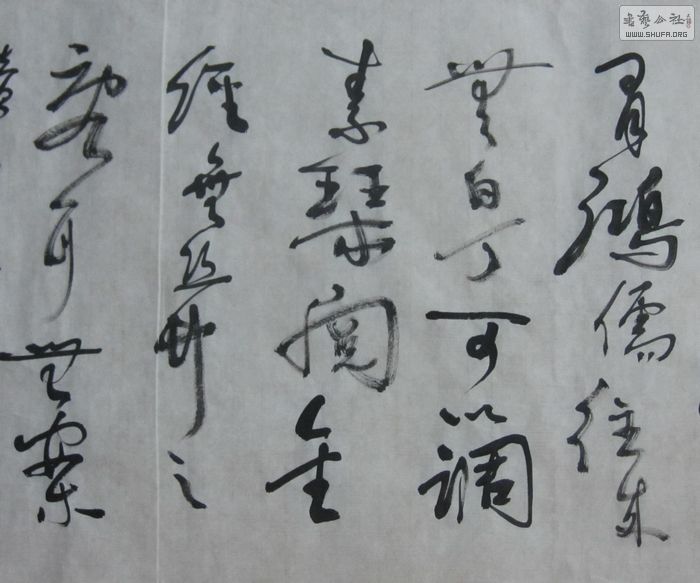 書藝公社
WWW.SHUFA.ORG
有鴻儒往来
無白丁可以調
素琴閱金
經無絲竹之
亂耳無案